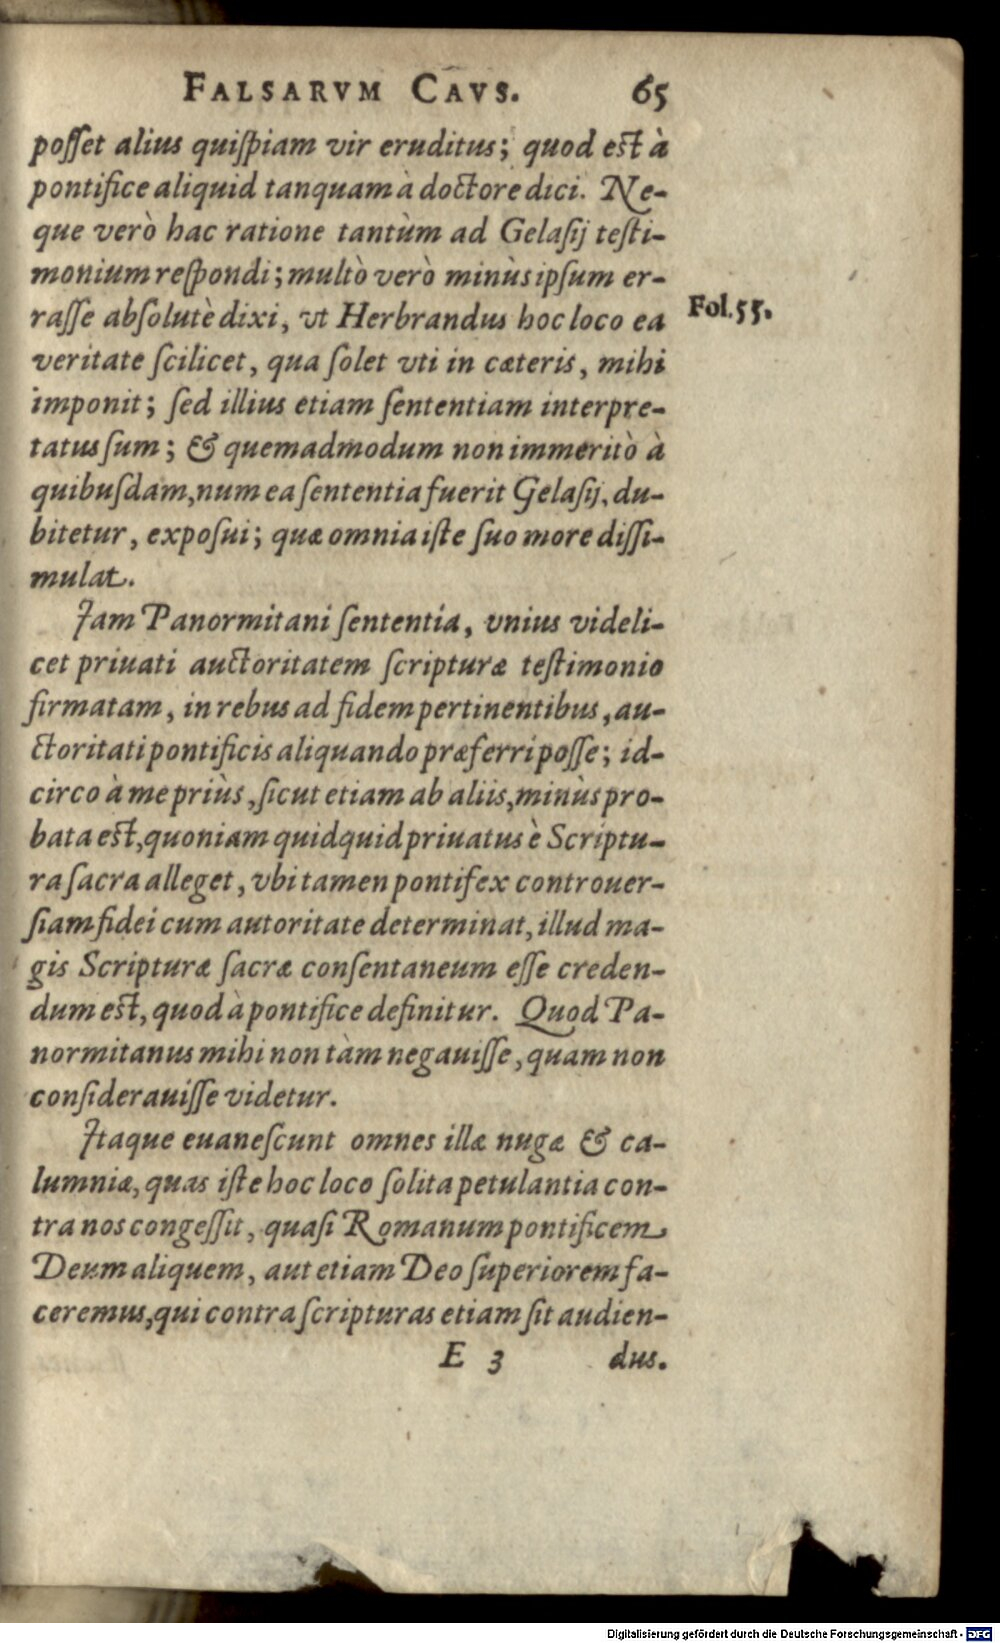 FALSARVM CAVS. 65
poſſet alius quiſpiam vir eruditus; quod eſt à
pontifice aliquid tanquam à doctore dici. Ne-
que verò hac ratione tantùm ad Gelaſij teſti-
monium reſpondi; multò verò minùs ipſum er-
raſſe abſolutè dixi, vt Herbrandus hoc loco ea
Fol. 55.
veritate ſcilicet, qua ſolet vti in cæteris, mihi
imponit; ſed illius etiam ſententiam interpre-
tatus ſum; & quemadmodum non immeritò à
quibuſdam, num ea ſententia fuerit Gelaſij, du-
bitetur, expoſui; quæ omnia iſte ſuo more diſſi-
mulat.
Jam Panormitani ſententia, vnius videli-
cet priuati auctoritatem ſcripturæ teſtimonio
firmatam, in rebus ad fidem pertinentibus, au-
ctoritati pontificis aliquando præferri poſſe; id-
circo à me priùs, ſicut etiam ab aliis, minùs pro-
bata eſt, quoniam quidquid priuatus è Scriptu-
ra ſacra alleget, vbi tamen pontifex controuer-
ſiam fidei cum autoritate determinat, illud ma-
gis Scripturæ ſacræ conſentaneum eſſe creden-
dum eſt, quod à pontifice definitur. Quod Pa-
normitanus mihi non tàm negauiſſe, quam non
conſiderauiſſe videtur.
Jtaque euaneſcunt omnes illæ nugæ & ca-
lumniæ, quas iſte hoc loco ſolita petulantia con-
tra nos congeſſit, quaſi Romanum pontificem
Deum aliquem, aut etiam Deo ſuperiorem fa-
ceremus, qui contra ſcripturas etiam ſit audien-
E 3 dus.
Digitalisierung gefördert durch die Deutsche Forschungsgemeinschaft - DFG